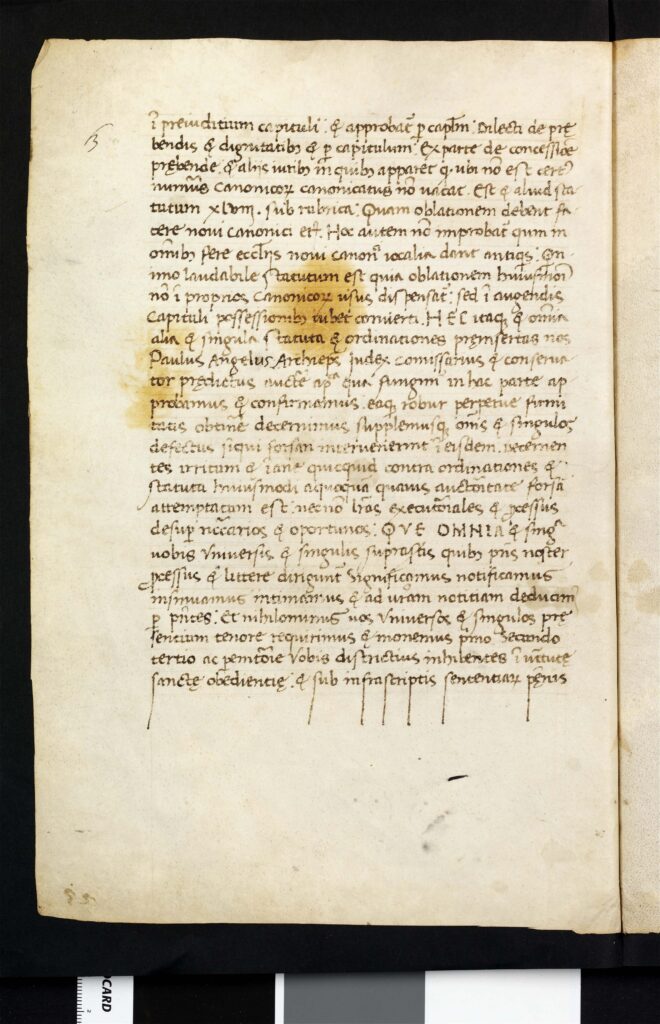 ī preiuditium capituli : & approbat̄ p̲ cap̄lm̄ : Dilecti de prę
bendis & dignitatib; & p̲ capitulum : Ex parte de concessiōe
prębende : & aliis iurib; in quib; apparet q. ubi nō est cert9
numerus Canonicoꝝ canonicatus nō uacat. Est & aliud sta
tutum xlviii. sub rubrica : Quam oblationem debent fa
cere noui canonici et̄. Hoc autem nō improbat̄ qum in
omib; fere eccl̄iis noui canonī iocalia dant antiq̄s : Qn̄
imo laudabile statutum est quia oblationem huiusmōi
nō ī proprios Canonicoꝝ usus dispensat̄ : sed ī augendis
Capituli possessionib; iubet conuerti. HEC itaq; & om̄ia
alia & singula statuta & ordinationes pręinsertas nos
Paulus Angelus Archiep̄s Iudex Comissarius & conserua
tor prędictus aucte ap̄ca qua fungimr̄ in hac parte ap
probamus & confirmamus. eaq; robur perpetue firmi
tatis obtinē decernimus supplemusq; om̄s & singulos
defectus siqui forsan interuenerint ī eisdem. decernen
tes irritum & inane quicquid contra ordinationes &
statuta huiusmodi a quoquā quauis auctoritate forsā
attemptatum est : necnō lr̄as executoriales & p̲cessus
desup̲ nēccarios & oportunos : QVE OMNIA & singa
uobis Vniuersis & singulis suprastis quib; pn̄s noster
p̲cessus & littere diriguntr̄ Significamus notificamus
insinuamus intimamus & ad ur̄am notitiam deducimr̄
p̲ pn̄tes : Et nihilominus uos Vniuersos & singulos prę
sentium tenore requirimus & monemus p̄mo secundo
tertio ac peremptōrie Vobis districtius inhibentes ī uirtutę
sanctę obedientię : & sub infrascriptis sententiaꝝ pęnis